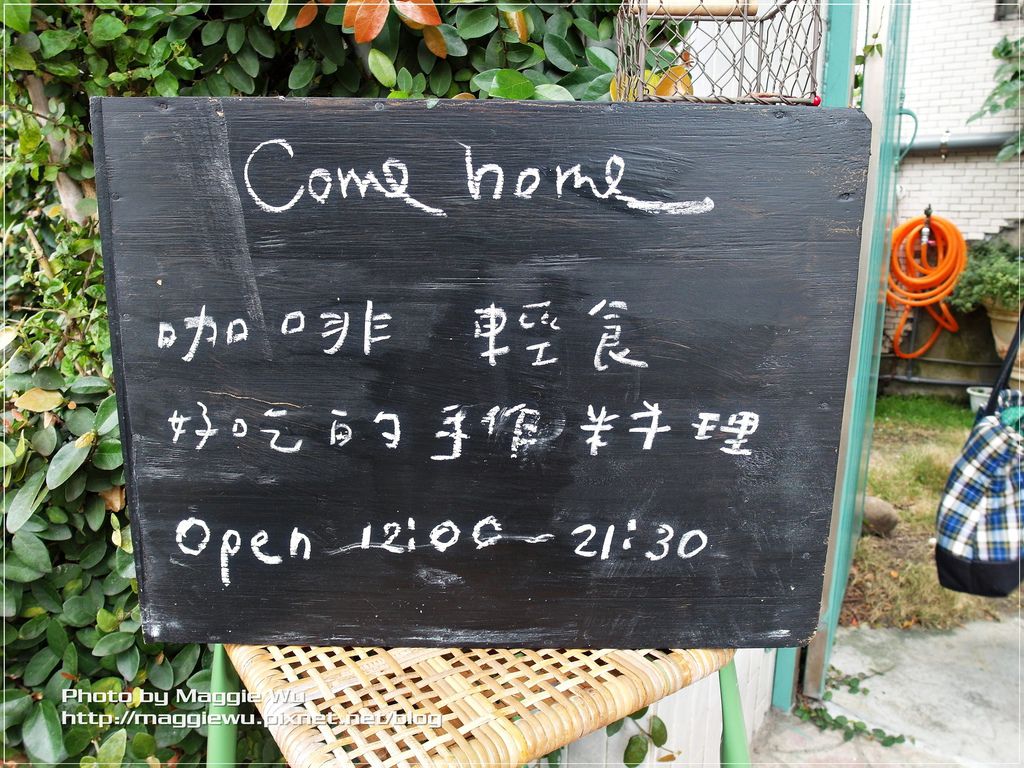 Come home
咖啡 輕食
好吃的手作料理
Open 12:00~21:30
Photo by Maggie Wu
http://maggiewu.pixnet.net/blog